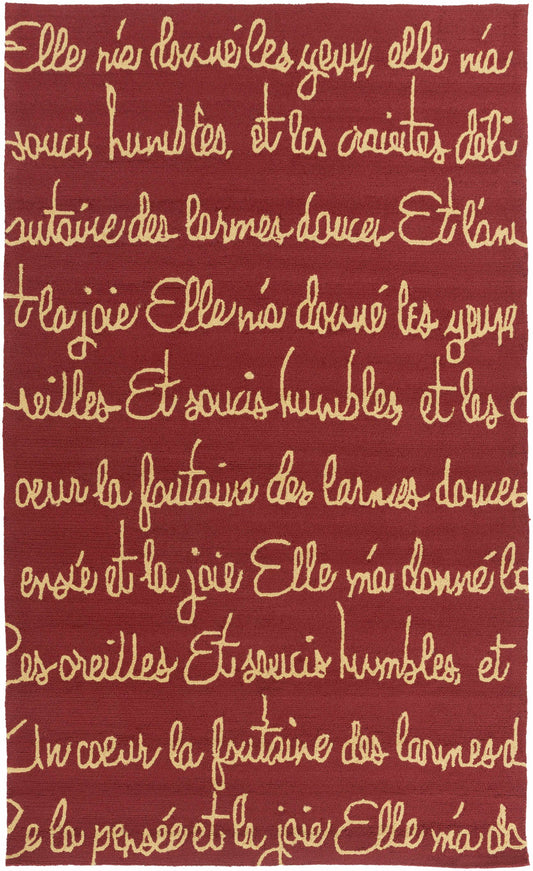 Elle m'a donné les yeux, elle m'a
soucis humbles, et les craintes déli
ontaire des larmes douces Et l'am
t la joie Elle m'a donné les yeux
reilles Et soucis humbles, et les c
oeur la fontaine des larmes douces
ensée et la joie Elle m'a donné le
les oreilles Et soucis humbles, et
Un coeur la fontaine des larmes d
De la pensée et la joie Elle m'a do